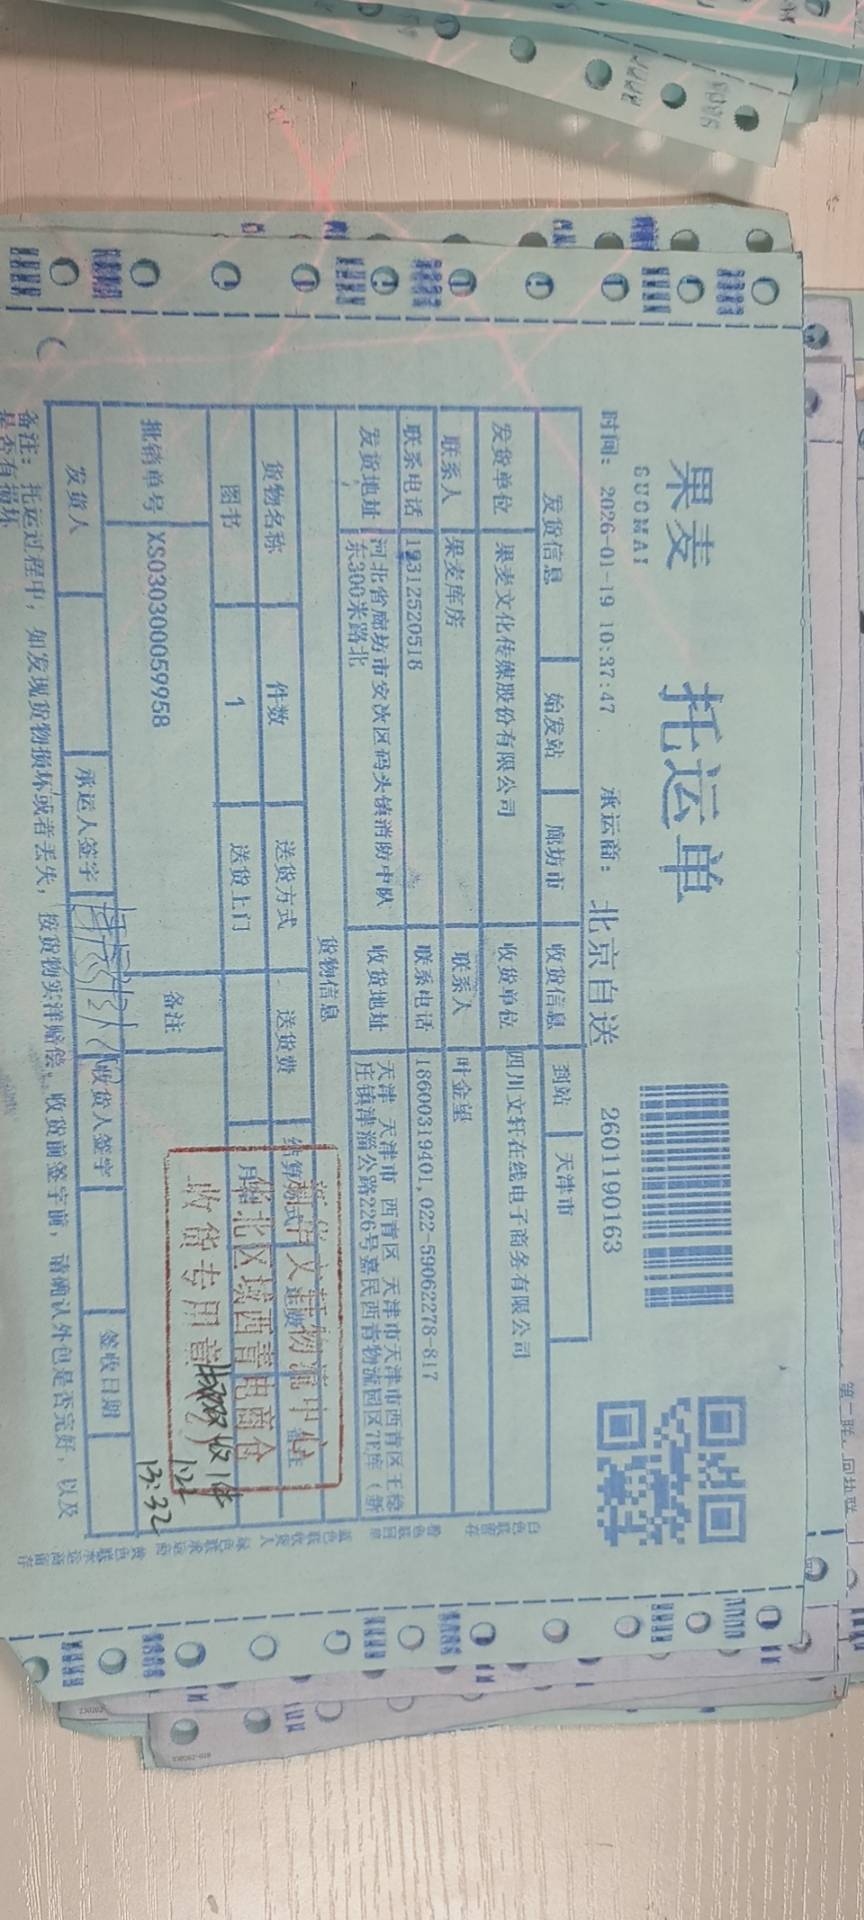 果麦
GUOMAI
托运单
2601190163
时间： 2026-01-19 10:37:47 承运商： 北京自送
发货信息 始发站 廊坊市 收货信息 到站 天津市
发货单位 果麦文化传媒股份有限公司 收货单位 四川文轩在线电子商务有限公司
联系人 果麦库房 联系人 叶金星
联系电话 19312520518 联系电话 18600319401,022-59062278-817
发货地址 河北省廊坊市安次区码头镇消防中队
东300米路北
收货地址 天津 天津市 西青区 天津市天津市西青区王稳
庄镇津淄公路226号嘉民西青物流园区7F库（新
货物信息
货物名称 件数 送货方式 送货费 结算方式 备注
图书 1 送货上门 月结
批销单号 XS030300059958 备注
文轩物流中心
华北区域西青电商仓
收货专用章
1.22
13:32
发货人 承运人签字 收货人签字 签收日期
备注：托运过程中，如发现货物损坏或者丢失，按货物实洋赔偿。收货前签字前，请确认外包是否完好，以及
是否有损坏
白色联留存 粉色联回单 蓝色联收货人 绿色联承运商 黄色联承运商留存
第二联